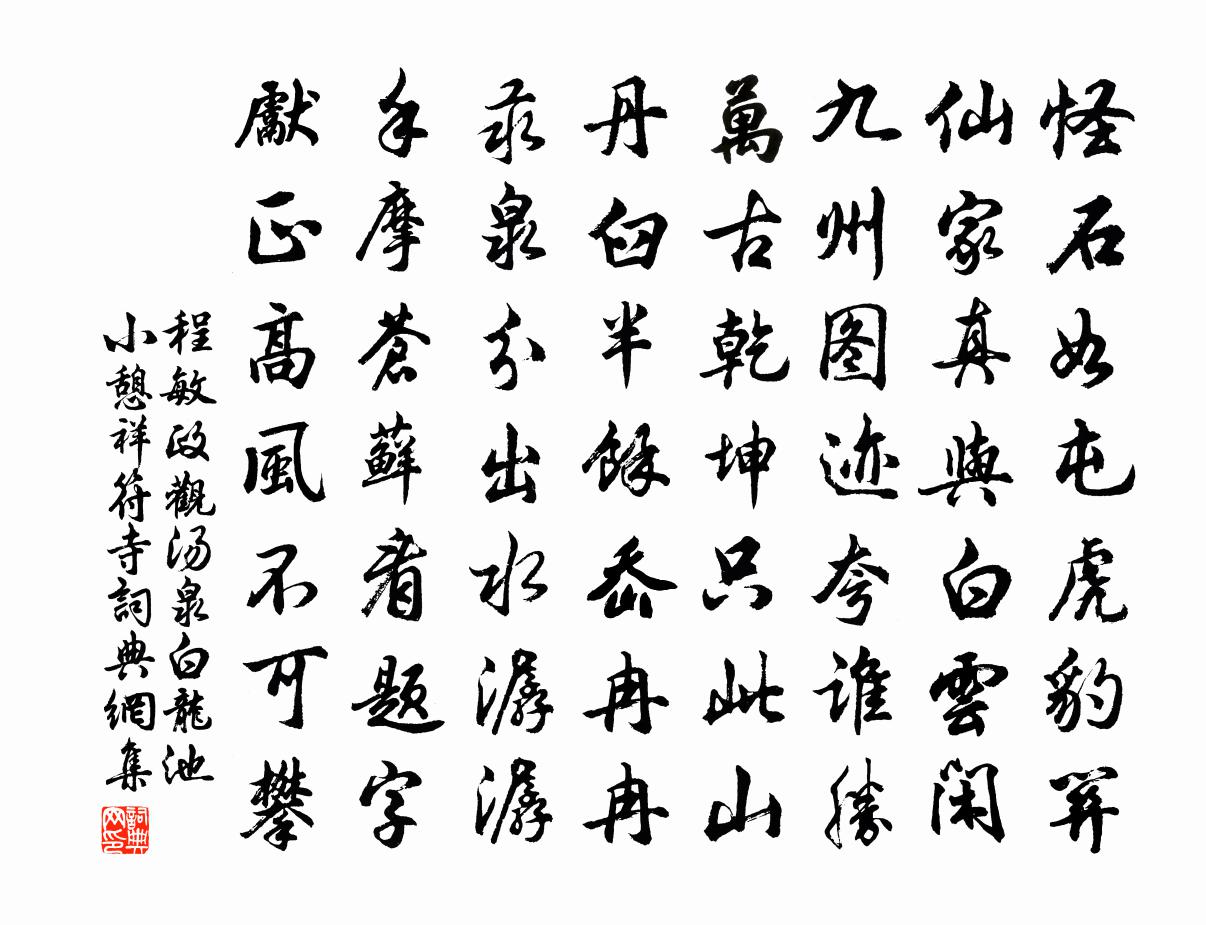 怪石如屯虎豹關
仙家真與白雲閑
九州图迹夸誰勝
萬古乾坤只此山
丹臼半餘冉冉
汞泉分出水潺潺
手摩蒼蘚看題字
獻正高風不可攀
程敏政觀湯泉白龍池
小憩祥符寺詞典網集
詞典网印